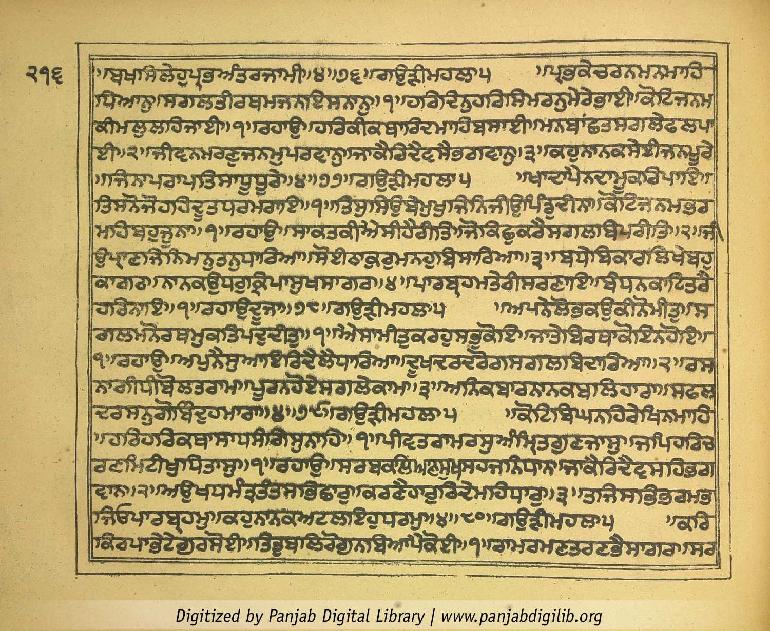 ੨੧੬
॥ਬਖਸਿਲੇਹੁਪ੍ਰਭਅੰਤਰਜਾਮੀ॥੪॥੭੬॥ਗਉੜੀਮਹਲਾ੫ ॥ਪ੍ਰਭਕੇਚਰਨਮਨਮਾਹਿ
ਧਿਆਨੁ॥ਸਗਲਤੀਰਥਮਜਨਇਸਨਾਨੁ॥੧॥ਹਰਿਦਿਨੁਹਰਿਸਿਮਰਨੁਮੇਰੇਭਾਈ॥ਕੋਟਿਜਨਮ
ਕੀਮਲੁਲਹਿਜਾਈ॥੧॥ਰਹਾਉ॥ਹਰਿਕੀਕਥਾਰਿਦਮਾਹਿਬਸਾਈ॥ਮਨਬਾਂਛਤਸਗਲੇਫਲਪਾ
ਈ॥੨॥ਜੀਵਨਮਰਣੁਜਨਮੁਪਰਵਾਨੁ॥ਜਾਕੈਰਿਦੈਵਸੈਭਗਵਾਨੁ॥੩॥ਕਹੁਨਾਨਕਸੇਈਜਨਪੂਰੇ
॥ਜਿਨਾਪਰਾਪਤਿਸਾਧੂਧੂਰੇ॥੪॥੭੭॥ਗਉੜੀਮਹਲਾ੫ ॥ਖਾਦਾਪੈਨਦਾਮੂਕਰਿਪਾਇ॥
ਤਿਸਨੋਜੋਹਹਿਦੂਤਧਰਮਰਾਇ॥੧॥ਤਿਸੁਸਿਉਬੇਮੁਖੁਜਿਨਿਜੀਉਪਿੰਡੁਦੀਨਾ॥ਕੋਟਿਜਨਮਭਰਮ
ਮਾਹਿਬਹੁਜੂਨਾ॥੧॥ਰਹਾਉ॥ਸਾਕਤਕੀਐਸੀਹੈਰੀਤਿ॥ਜੋਕਿਛੁਕਰੈਸਗਲਬਿਪਰੀਤਿ॥੨॥ਜੀ
ਉਪ੍ਰਾਣਜਿਨਿਮਨੁਤਨੁਧਾਰਿਆ॥ਸੋਈਠਾਕੁਰੁਮਨਹੁਬਿਸਾਰਿਆ॥੩॥ਬਧੇਬਿਕਾਰਲਿਖੇਬਹੁ
ਕਾਗਰ॥ਨਾਨਕਉਧਰੁਕ੍ਰਿਪਾਸੁਖਸਾਗਰ॥੪॥ਪਾਰਬ੍ਰਹਮਤੇਰੀਸਰਣਾਇ॥ਬੰਧਨਕਾਟਿਤਰੈ
ਹਰਿਨਾਇ॥੧॥ਰਹਾਉਦੂਜਾ॥੭੮॥ਗਉੜੀਮਹਲਾ੫ ॥ਅਪਨੇਲੋਭਕਉਕੀਨੋਮੀਤੁ॥ਸ
ਗਲਮਨੋਰਥਮੁਕਤਿਪਦੁਦੀਤੁ॥੧॥ਐਸਾਮੀਤੁਕਰਹੁਸਭੁਕੋਇ॥ਜਾਤੇਬਿਰਥਾਕੋਇਨਹੋਇ॥
੧॥ਰਹਾਉ॥ਅਪੁਨੈਸੁਆਇਰਿਦੈਲੈਧਾਰਿਆ॥ਦੂਖਦਰਦਰੋਗਸਗਲਬਿਦਾਰਿਆ॥੨॥ਰਸ
ਨਾਗੀਧੀਬੋਲਤਰਾਮ॥ਪੂਰਨਹੋਏਸਗਲੇਕਾਮ॥੩॥ਅਨਿਕਬਾਰਨਾਨਕਬਲਿਹਾਰਾ॥ਸਫਲ
ਦਰਸਨੁਗੋਬਿੰਦੁਹਮਾਰਾ॥੪॥੭੯॥ਗਉੜੀਮਹਲਾ੫ ॥ਕੋਟਿਬਿਘਨਹਿਰੇਖਿਨਮਾਹਿ
॥ਹਰਿਹਰਿਕਥਾਸਾਧਸੰਗਿਸੁਨਾਹਿ॥੧॥ਪੀਵਤਰਾਮਰਸੁਅੰਮ੍ਰਿਤਗੁਣਜਾਸੁ॥ਜਪਿਹਰਿਚ
ਰਣਮਿਟੀਖੁਧਿਤਾਸੁ॥੧॥ਰਹਾਉ॥ਸਰਬਕਲਿਆਣਸੁਖਸਹਜਨਿਧਾਨ॥ਜਾਕੈਰਿਦੈਵਸਹਿਭਗ
ਵਾਨ॥੨॥ਅਉਖਧਮੰਤ੍ਰਤੰਤਸਭਿਛਾਰੁ॥ਕਰਣੈਹਾਰੁਰਿਦੇਮਹਿਧਾਰੁ॥੩॥ਤਜਿਸਭਿਭਰਮਭ
ਜਿਓਪਾਰਬ੍ਰਹਮੁ॥ਕਹੁਨਾਨਕਅਟਲਇਹੁਧਰਮੁ॥੪॥੮੦॥ਗਉੜੀਮਹਲਾ੫ ॥ਕਰਿ
ਕਿਰਪਾਭੇਟੇਗੁਰਸੋਈ॥ਤਿਤੁਬਲਿਰੋਗੁਨਬਿਆਪੈਕੋਈ॥੧॥ਰਾਮਰਮਣਤਰਣਭੈਸਾਗਰ॥ਸਰ
Digitized by Panjab Digital Library | www.panjabdigilib.org